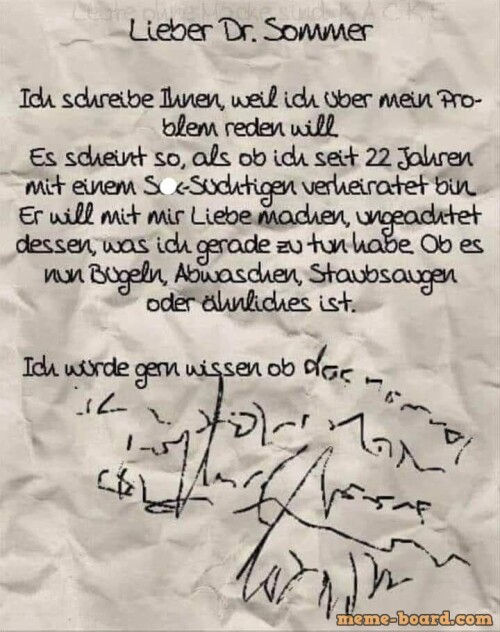 Lieber Dr. Sommer
Ich schreibe Ihnen, weil ich über mein Pro-
blem reden will.
Es scheint so, als ob ich seit 22 Jahren
mit einem S x-Süchtigen verheiratet bin.
Er will mit mir Liebe machen, ungeachtet
dessen, was ich gerade zu tun habe. Ob es
nun Bügeln, Abwaschen, Staubsaugen
oder ähnliches ist.
Ich würde gern wissen ob
meme-board.com